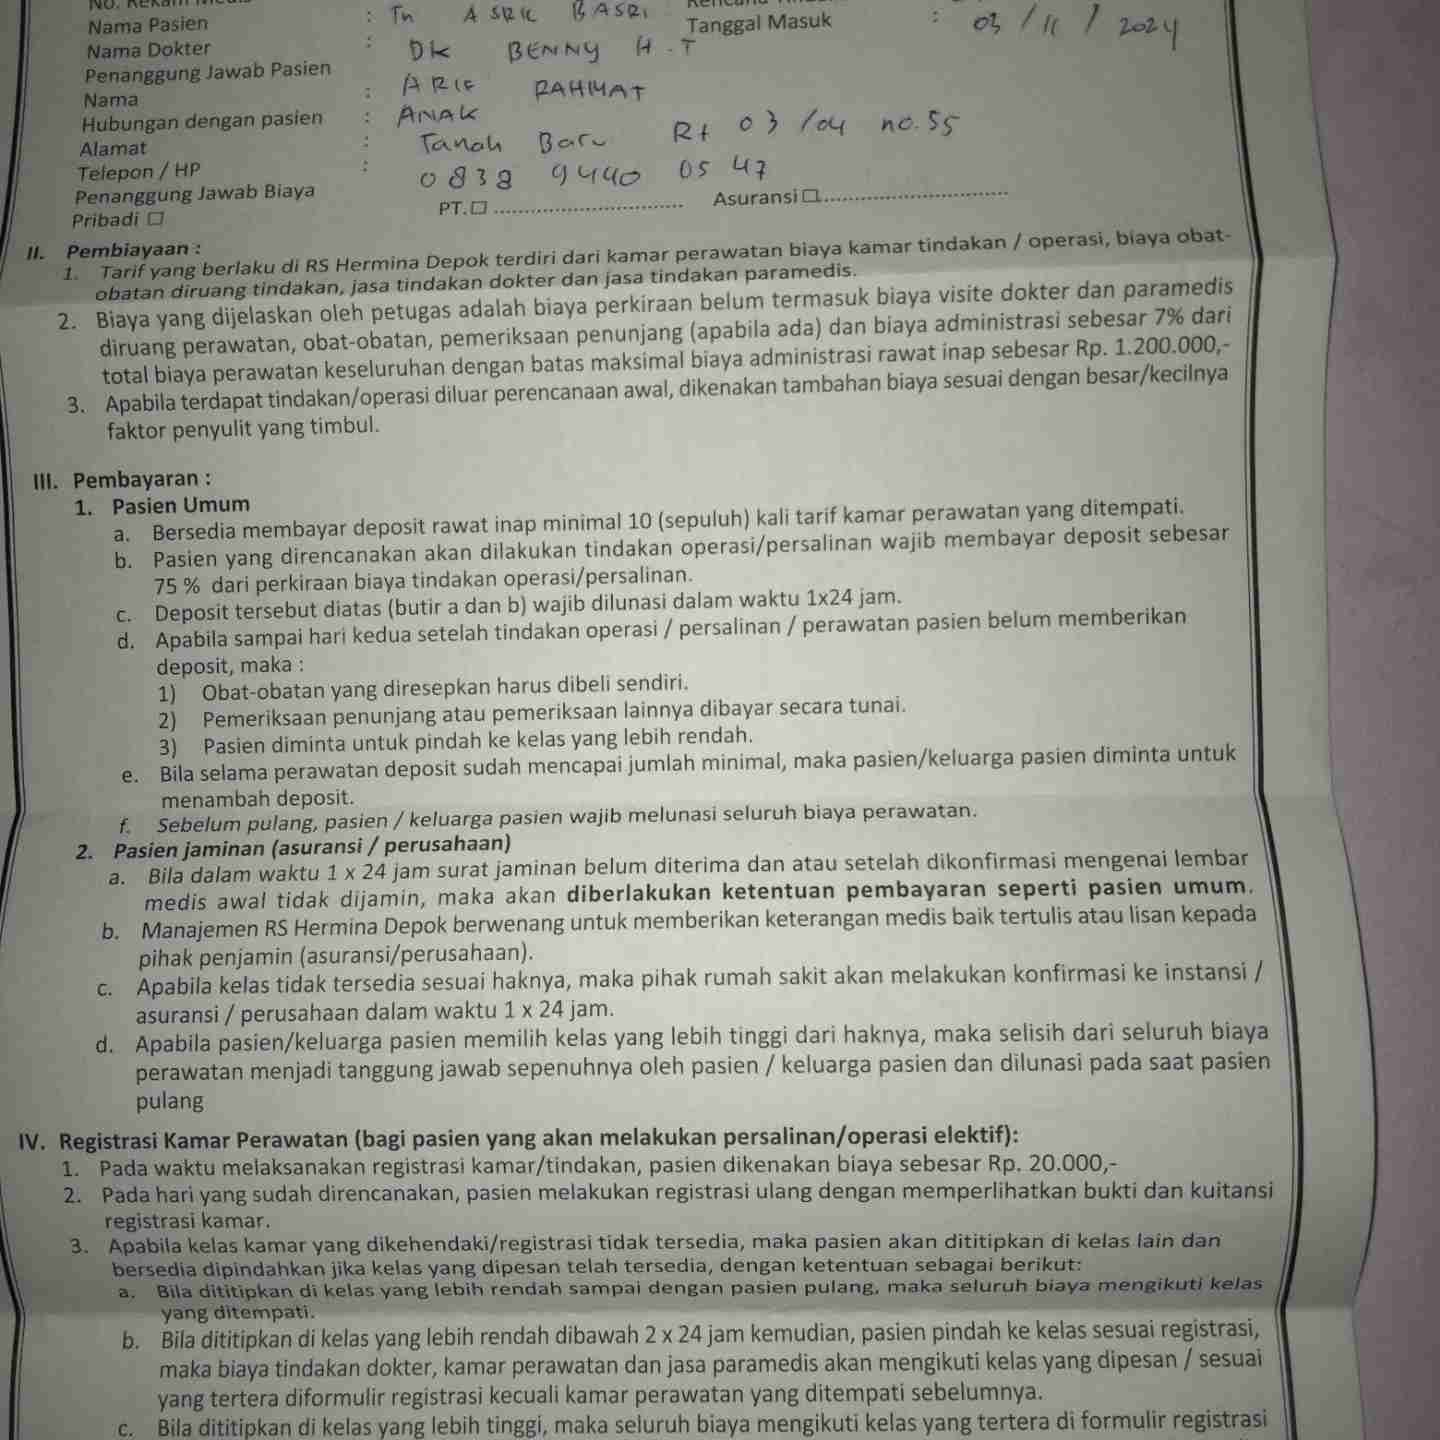 No. Rekam Medis
Nama Pasien : Tn ASRIL BASRI
Tanggal Masuk : 03 / 11 / 2024
Nama Dokter : DR BENNY H.T
Penanggung Jawab Pasien
Nama : ARIF RAHMAT
Hubungan dengan pasien : ANAK
Alamat : Tanah Baru Rt 03 /04 no.55
Telepon / HP : 0838 9440 05 47
Penanggung Jawab Biaya
Pribadi □ PT.□ .............................. Asuransi □..............................
II. Pembiayaan :
1. Tarif yang berlaku di RS Hermina Depok terdiri dari kamar perawatan biaya kamar tindakan / operasi, biaya obat-
obatan diruang tindakan, jasa tindakan dokter dan jasa tindakan paramedis.
2. Biaya yang dijelaskan oleh petugas adalah biaya perkiraan belum termasuk biaya visite dokter dan paramedis
diruang perawatan, obat-obatan, pemeriksaan penunjang (apabila ada) dan biaya administrasi sebesar 7% dari
total biaya perawatan keseluruhan dengan batas maksimal biaya administrasi rawat inap sebesar Rp. 1.200.000,-
3. Apabila terdapat tindakan/operasi diluar perencanaan awal, dikenakan tambahan biaya sesuai dengan besar/kecilnya
faktor penyulit yang timbul.
III. Pembayaran :
1. Pasien Umum
a. Bersedia membayar deposit rawat inap minimal 10 (sepuluh) kali tarif kamar perawatan yang ditempati.
b. Pasien yang direncanakan akan dilakukan tindakan operasi/persalinan wajib membayar deposit sebesar
75 % dari perkiraan biaya tindakan operasi/persalinan.
c. Deposit tersebut diatas (butir a dan b) wajib dilunasi dalam waktu 1x24 jam.
d. Apabila sampai hari kedua setelah tindakan operasi / persalinan / perawatan pasien belum memberikan
deposit, maka :
1) Obat-obatan yang diresepkan harus dibeli sendiri.
2) Pemeriksaan penunjang atau pemeriksaan lainnya dibayar secara tunai.
3) Pasien diminta untuk pindah ke kelas yang lebih rendah.
e. Bila selama perawatan deposit sudah mencapai jumlah minimal, maka pasien/keluarga pasien diminta untuk
menambah deposit.
f. Sebelum pulang, pasien / keluarga pasien wajib melunasi seluruh biaya perawatan.
2. Pasien jaminan (asuransi / perusahaan)
a. Bila dalam waktu 1 x 24 jam surat jaminan belum diterima dan atau setelah dikonfirmasi mengenai lembar
medis awal tidak dijamin, maka akan diberlakukan ketentuan pembayaran seperti pasien umum.
b. Manajemen RS Hermina Depok berwenang untuk memberikan keterangan medis baik tertulis atau lisan kepada
pihak penjamin (asuransi/perusahaan).
c. Apabila kelas tidak tersedia sesuai haknya, maka pihak rumah sakit akan melakukan konfirmasi ke instansi /
asuransi / perusahaan dalam waktu 1 x 24 jam.
d. Apabila pasien/keluarga pasien memilih kelas yang lebih tinggi dari haknya, maka selisih dari seluruh biaya
perawatan menjadi tanggung jawab sepenuhnya oleh pasien / keluarga pasien dan dilunasi pada saat pasien
pulang
IV. Registrasi Kamar Perawatan (bagi pasien yang akan melakukan persalinan/operasi elektif):
1. Pada waktu melaksanakan registrasi kamar/tindakan, pasien dikenakan biaya sebesar Rp. 20.000,-
2. Pada hari yang sudah direncanakan, pasien melakukan registrasi ulang dengan memperlihatkan bukti dan kuitansi
registrasi kamar.
3. Apabila kelas kamar yang dikehendaki/registrasi tidak tersedia, maka pasien akan dititipkan di kelas lain dan
bersedia dipindahkan jika kelas yang dipesan telah tersedia, dengan ketentuan sebagai berikut:
a. Bila dititipkan di kelas yang lebih rendah sampai dengan pasien pulang, maka seluruh biaya mengikuti kelas
yang ditempati.
b. Bila dititipkan di kelas yang lebih rendah dibawah 2 x 24 jam kemudian, pasien pindah ke kelas sesuai registrasi,
maka biaya tindakan dokter, kamar perawatan dan jasa paramedis akan mengikuti kelas yang dipesan / sesuai
yang tertera diformulir registrasi kecuali kamar perawatan yang ditempati sebelumnya.
c. Bila dititipkan di kelas yang lebih tinggi, maka seluruh biaya mengikuti kelas yang tertera di formulir registrasi